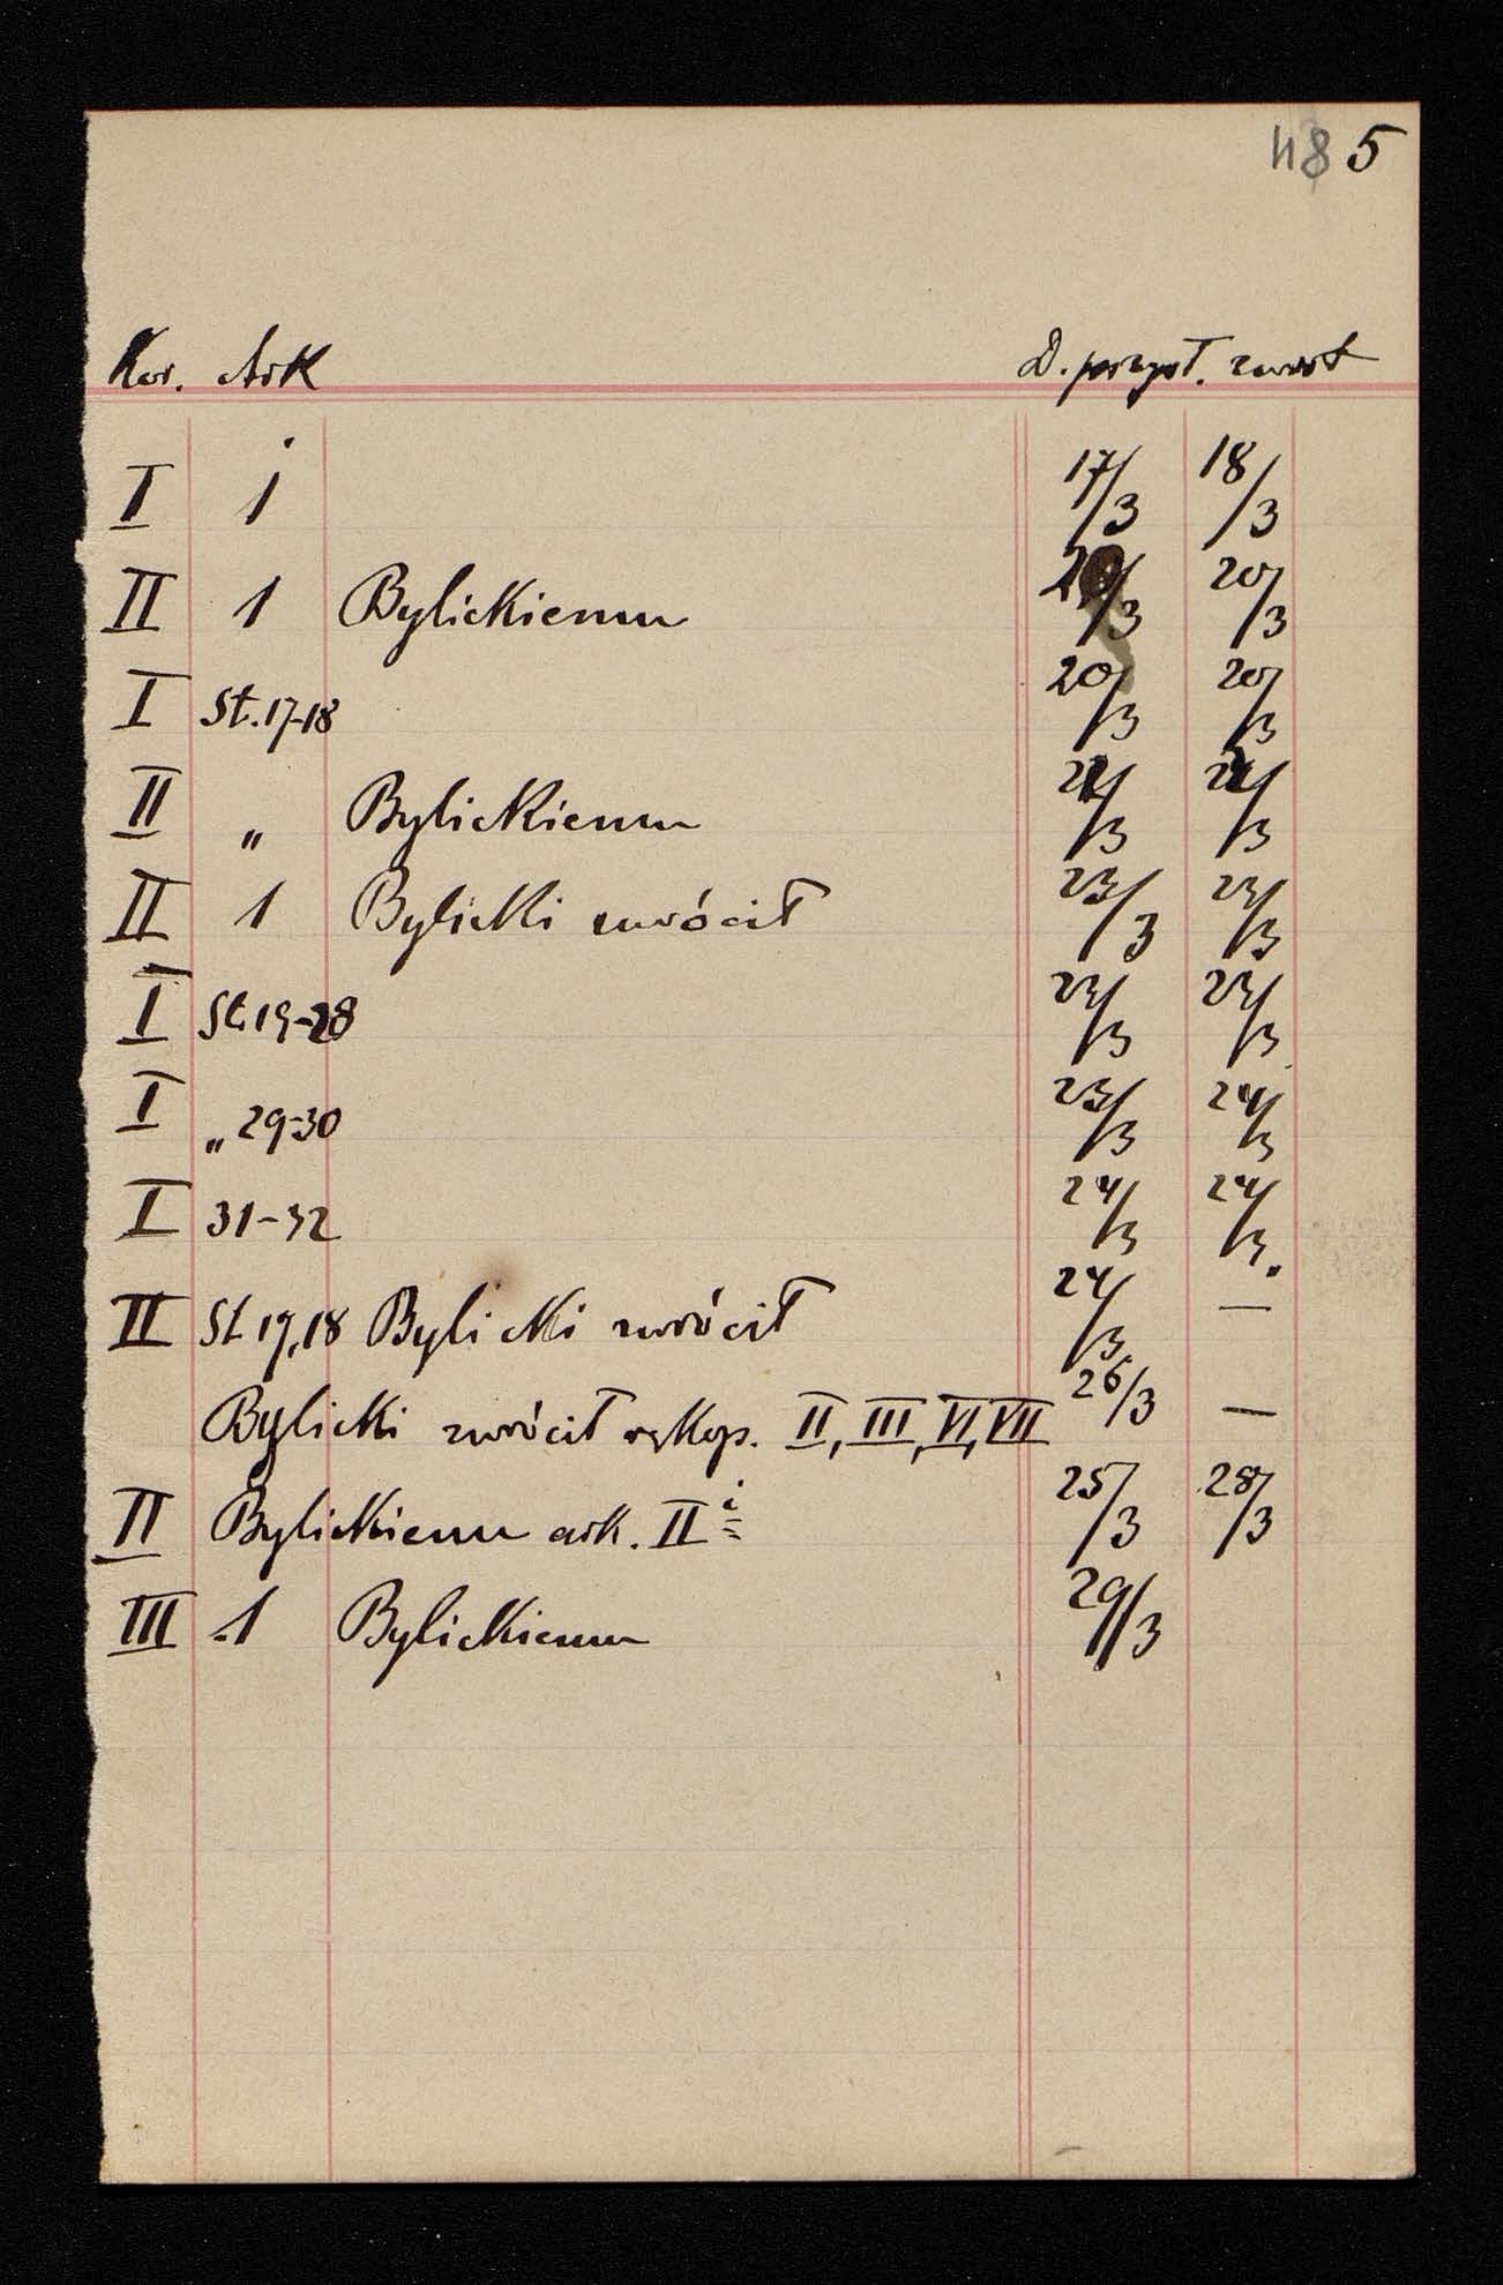 48 5
Kor. Ark D. przysł. zwrot
I 1 17/3 18/3
II 1 Bylickiemu 20/3 20/3
I St. 17-18 20/3 20/3
II „ Bylickiemu 21/3 21/3
II 1 Bylicki zwrócił 23/3 23/3
I St 19-28 23/3 23/3
I „ 29-30 23/3 24/3
I 31-32 24/3 24/3.
II St 17,18 Bylicki zwrócił 24/3 —
Bylicki zwrócił rękop. II, III, VI, VII 26/3 —
II Bylickiemu ark. II i 25/3 28/3
III 1 Bylickiemu 29/3